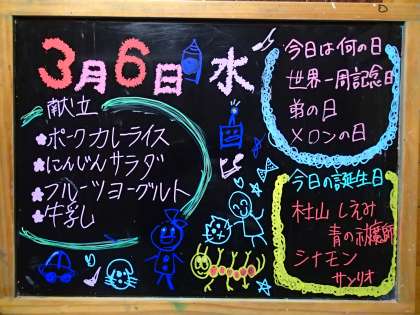 3月6日 水
献立
ポークカレーライス
にんじんサラダ
フルーツヨーグルト
牛乳
今日は何の日
世界一周記念日
弟の日
メロンの日
今日の誕生日
村山しえみ
青の祓魔師
シナモン
サンリオ